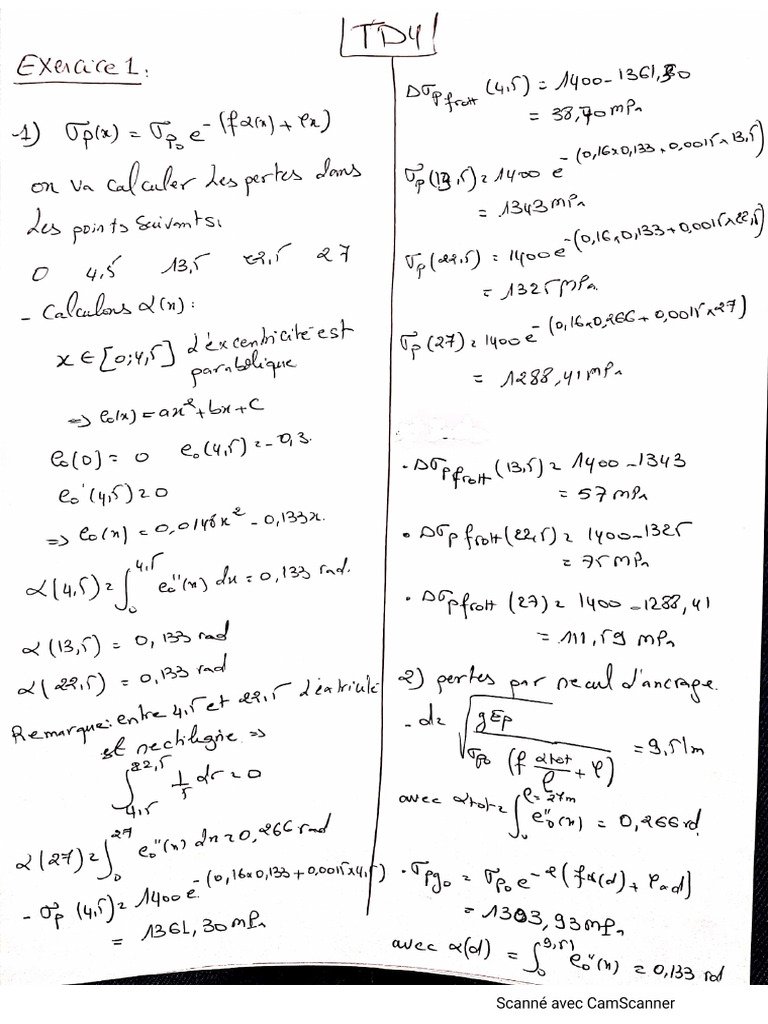 TD4
Exercice 1:
1) σp(x) = σp₀ e^-(fα(x) + φx)
on va calculer les pertes dans
les points suivants:
0 4,5 13,5 22,5 27
- Calculons α(x):
x ∈ [0;4,5] l'éxcentricité est
parabolique
⇒ e₀(x) = ax² + bx + C
e₀(0) = 0 e₀(4,5) = -0,3.
e₀'(4,5) = 0
⇒ e₀(x) = 0,0148x² - 0,133x.
α(4,5) = ∫₀^4,5 e₀''(x) dx = 0,133 rad.
α(13,5) = 0,133 rad
α(22,5) = 0,133 rad
Remarque: entre 4,5 et 22,5 l'éxtricité
est rectiligne ⇒
∫_4,5^22,5 1/r dr = 0
α(27) = ∫₀^27 e₀''(x) dx = 0,266 rad
- σp (4,5) = 1400 e^-(0,16x0,133 + 0,0015x4,5)
= 1361,30 mPa
Δσp frott (4,5) = 1400 - 1361,30
= 38,70 mPa
σp(13,5) = 1400 e^-(0,16x0,133 + 0,0015x13,5)
= 1343 mPa
σp(22,5) = 1400 e^-(0,16x0,133 + 0,0015x22,5)
= 1325 mPa.
σp(27) = 1400 e^-(0,16x0,266 + 0,0015x27)
= 1288,41 mPa
• Δσp frott (13,5) = 1400 - 1343
= 57 mPa
• Δσp frott (22,5) = 1400 - 1325
= 75 mPa
• Δσp frott (27) = 1400 - 1288,41
= 111,59 mPa
2) pertes par recul d'ancrage.
- d = √(gEp / σp₀ (f αtot/l + φ)) = 9,51m
avec αtot = ∫₀^l=27m e₀''(x) = 0,266 rd.
• σpg₀ = σp₀ e^-2(fα(d) + φxd)
= 1303,93 mPa
avec α(d) = ∫₀^9,51 e₀''(x) = 0,133 rd
Scanné avec CamScanner